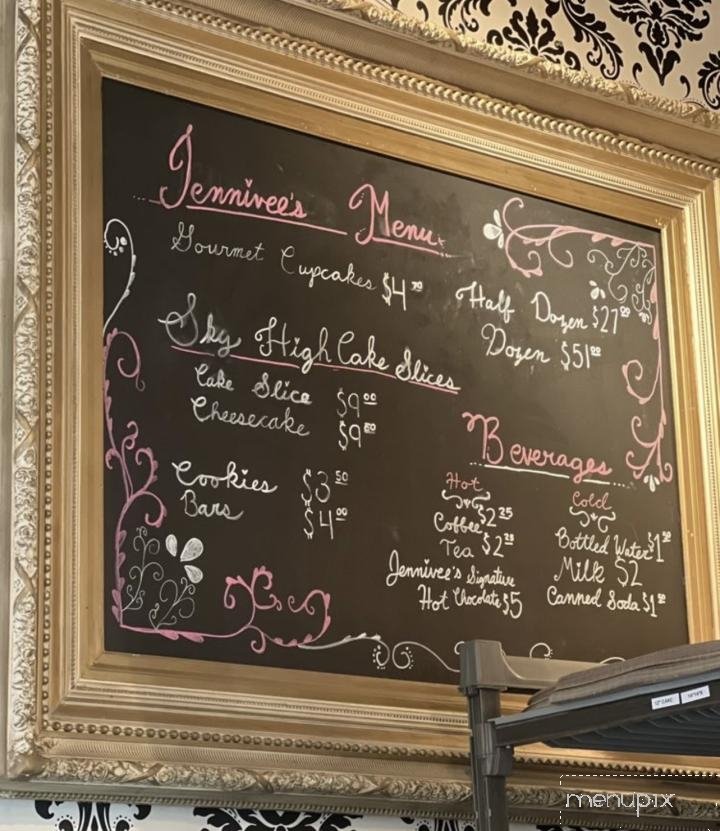 Jennivee's Menu
Gourmet Cupcakes $4
Half Dozen $27
Dozen $51⁰⁰
Sky High Cake Slices
Cake Slice $9⁰⁰
Cheesecake $9⁵⁰
Cookies $3⁵⁰
Bars $4⁰⁰
Beverages
Hot
Coffee $2²⁵
Tea $2²⁵
Jennivee's Signature
Hot Chocolate $5
Cold
Bottled Water $1⁵⁰
Milk $2
Canned Soda $1⁵⁰
menupix